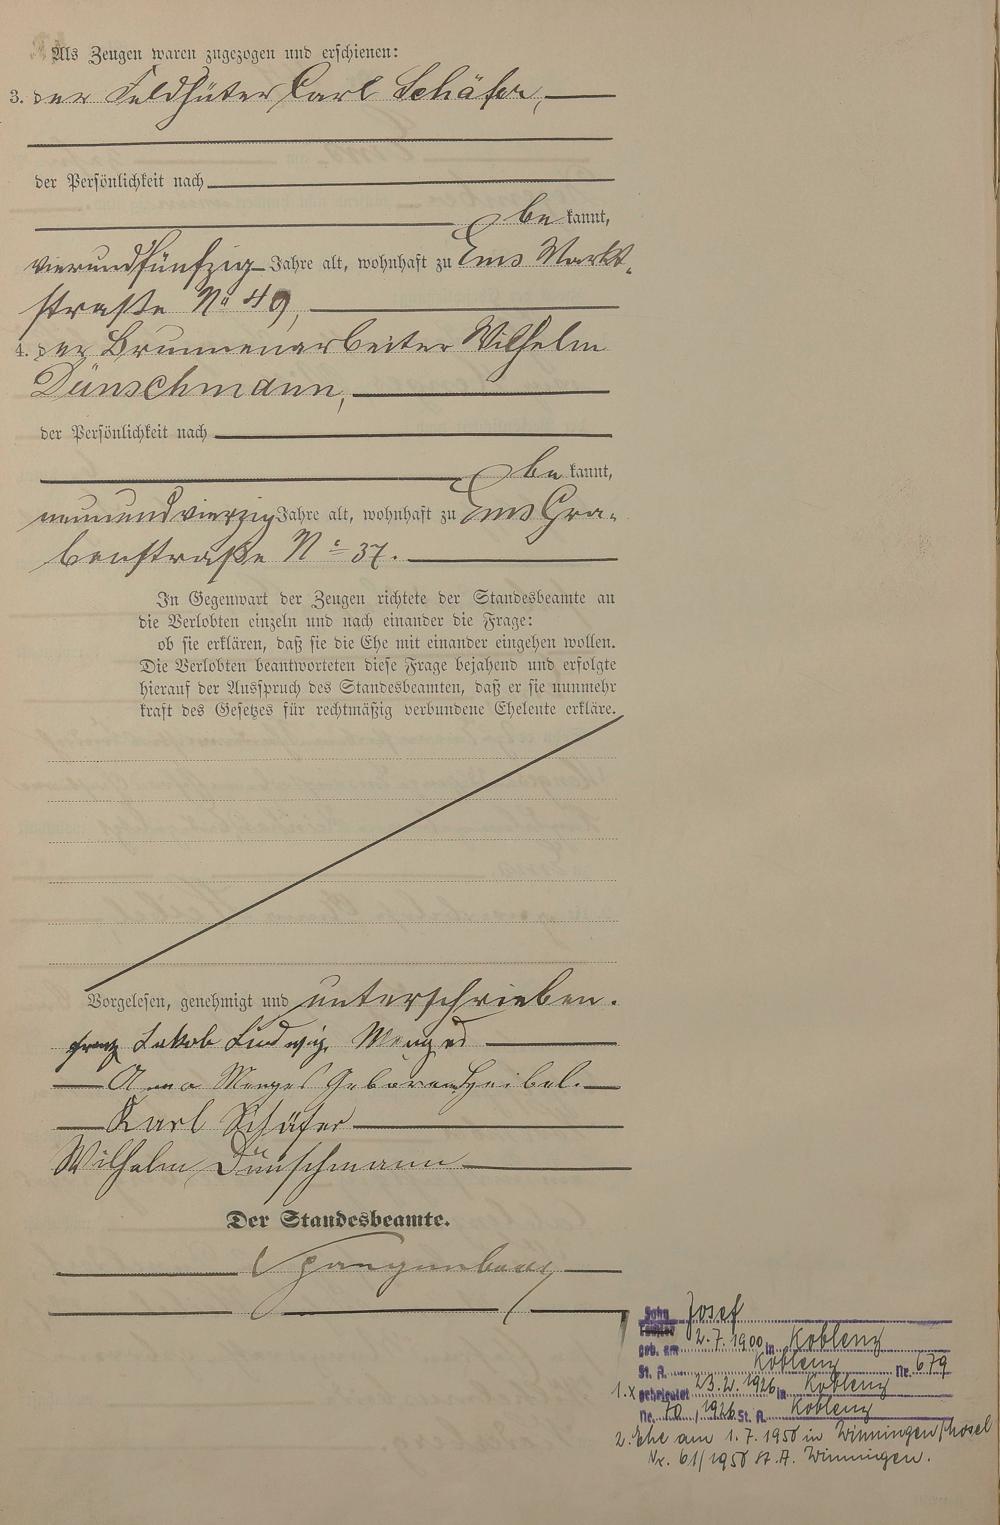 Als Zeugen waren zugezogen und erschienen:
3. der Feldhüter Carl Schäfer,
der Persönlichkeit nach
be kannt,
vierundfünfzig Jahre alt, wohnhaft zu Ems Markt-
straße No 49,
4. der Brunnenarbeiter Wilhelm
Dünschmann,
der Persönlichkeit nach
be kannt,
neunundvierzig Jahre alt, wohnhaft zu Ems Gra-
benstraße No 37.
In Gegenwart der Zeugen richtete der Standesbeamte an
die Verlobten einzeln und nach einander die Frage:
ob sie erklären, daß sie die Ehe mit einander eingehen wollen.
Die Verlobten beantworteten diese Frage bejahend und erfolgte
hierauf der Ausspruch des Standesbeamten, daß er sie nunmehr
kraft des Gesetzes für rechtmäßig verbundene Eheleute erkläre.
Vorgelesen, genehmigt und unterschrieben.
Franz Jakob Ludwig Menges
Anna Menges Geboren Heibel.
Karl Schäfer
Wilhelm Dünschmann
Der Standesbeamte.
Spangenberg
Sohn Josef
Tochter
geb. am 2.7.1900 in Koblenz
St. A. Koblenz Nr. 679
1. x geheiratet 23.2.1926 in Koblenz
Nr. 70 / 1926 St. A. Koblenz
2. Ehe am 1.7.1950 in Winningen/Mosel
Nr. 61/1950 St. A. Winningen.